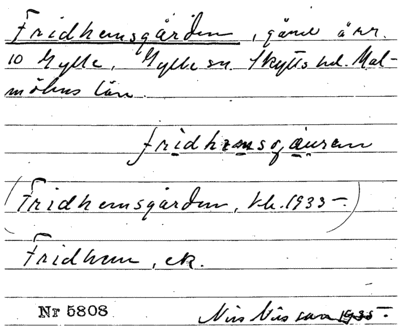 Fridhemsgården, gård å nr.
10 Gylle, Gylle sn. Skytts hd. Mal-
möhus län.
fridhemsgåuren
(Fridhemsgården, kh. 1933-)
Fridhem, ek.
Nr 5808 Nils Nilsson 1935-